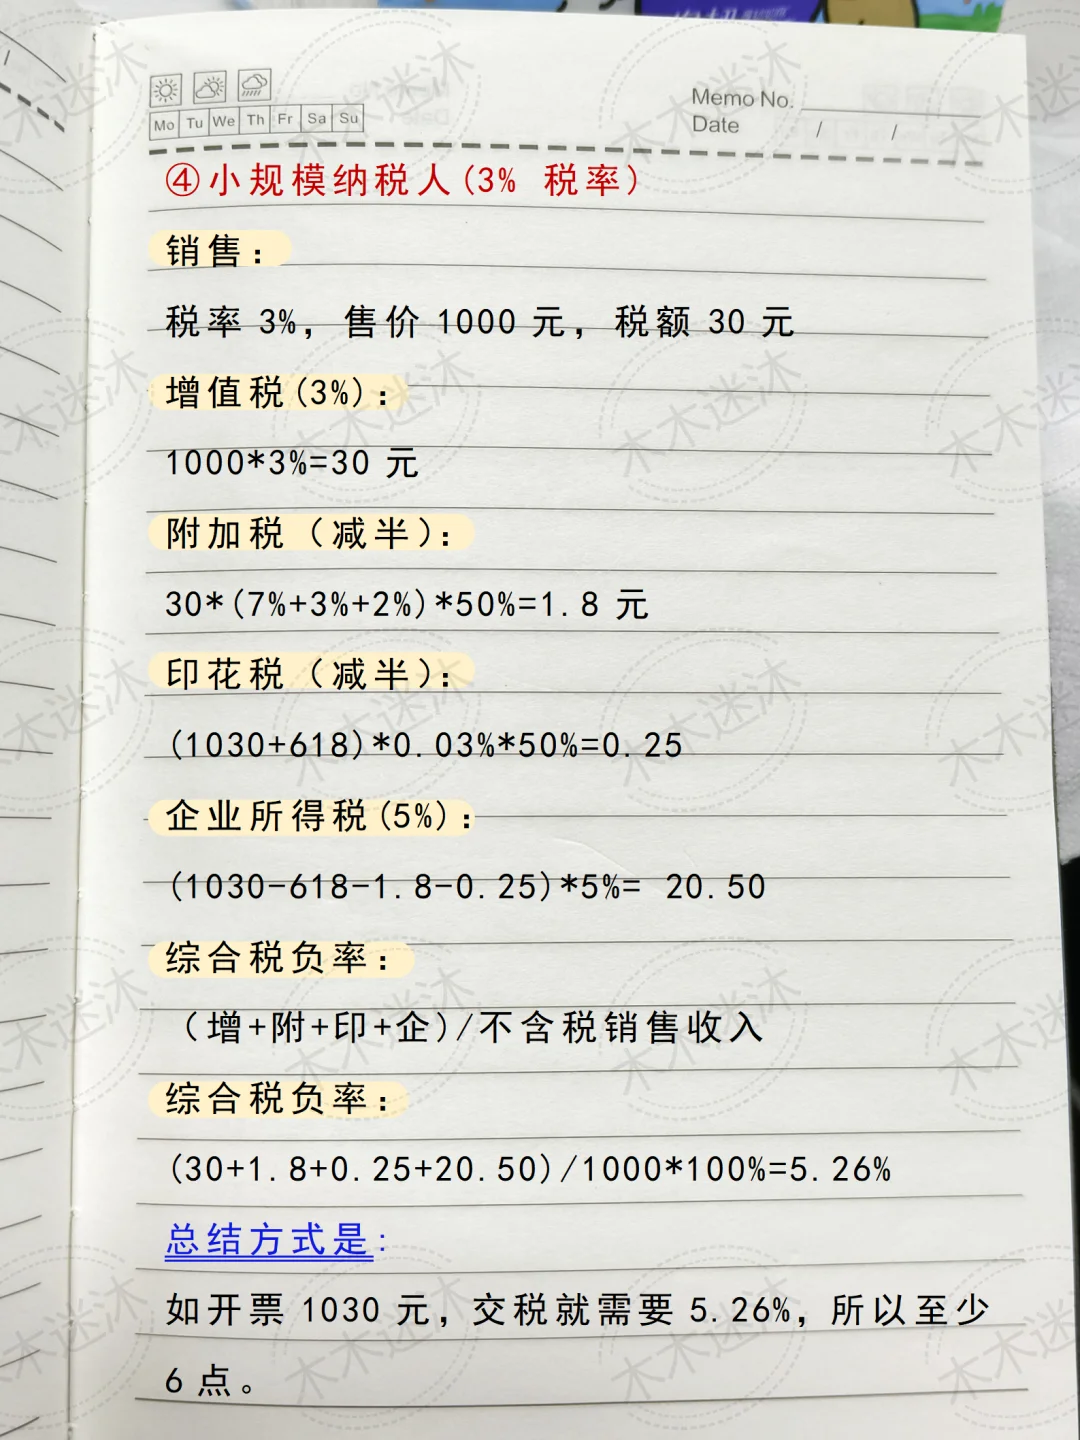 Mo Tu We Th Fr Sa Su
Memo No.
Date / /
④小规模纳税人(3% 税率)
销售：
税率 3%，售价 1000 元，税额 30 元
增值税(3%)：
1000*3%=30 元
附加税（减半）：
30*(7%+3%+2%)*50%=1.8 元
印花税（减半）：
(1030+618)*0.03%*50%=0.25
企业所得税(5%)：
(1030-618-1.8-0.25)*5%= 20.50
综合税负率：
（增+附+印+企)/不含税销售收入
综合税负率：
(30+1.8+0.25+20.50)/1000*100%=5.26%
总结方式是:
如开票 1030 元，交税就需要 5.26%，所以至少
6 点。
木木迷沐